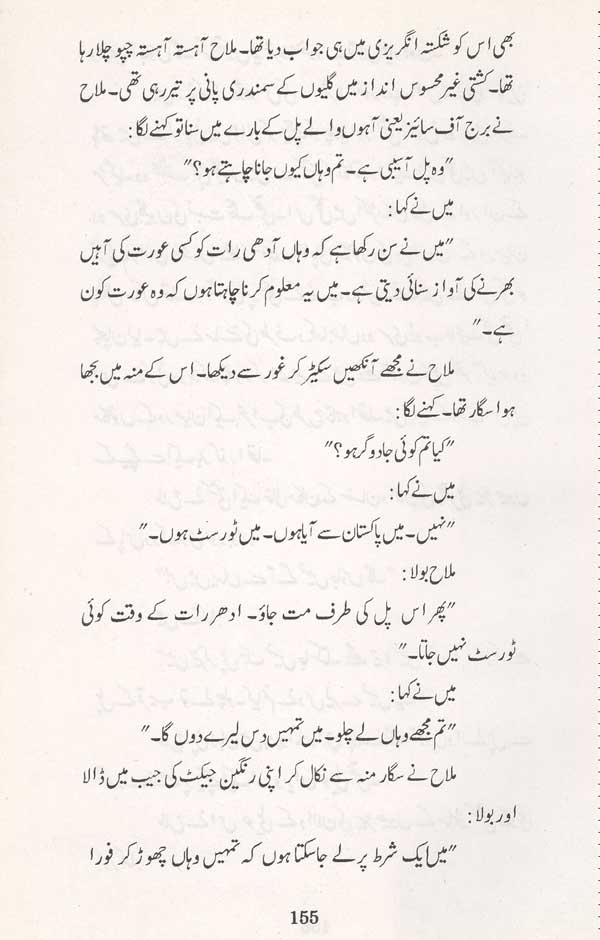 بھی اس کو شکستہ انگریزی میں ہی جواب دیا تھا۔ ملاح آہستہ آہستہ چپو چلا رہا
تھا۔ کشتی غیر محسوس انداز میں گلیوں کے سمندری پانی پر تیر رہی تھی۔ ملاح
نے برج آف سائیز یعنی آہوں والے پل کے بارے میں سنا تو کہنے لگا :
"وہ پل آسیبی ہے۔ تم وہاں کیوں جانا چاہتے ہو؟"
میں نے کہا :
"میں نے سن رکھا ہے کہ وہاں آدھی رات کو کسی عورت کی آہیں
بھرنے کی آواز سنائی دیتی ہے۔ میں یہ معلوم کرنا چاہتا ہوں کہ وہ عورت کون
ہے۔"
ملاح نے مجھے آنکھیں سکیڑ کر غور سے دیکھا۔ اس کے منہ میں بجھا
ہوا سگار تھا۔ کہنے لگا :
"کیا تم کوئی جادوگر ہو؟"
میں نے کہا :
"نہیں۔ میں پاکستان سے آیا ہوں۔ میں ٹورسٹ ہوں۔"
ملاح بولا :
"پھر اس پل کی طرف مت جاؤ۔ ادھر رات کے وقت کوئی
ٹورسٹ نہیں جاتا۔"
میں نے کہا :
"تم مجھے وہاں لے چلو۔ میں تمہیں دس لیرے دوں گا۔"
ملاح نے سگار منہ سے نکال کر اپنی رنگین جیکٹ کی جیب میں ڈالا
اور بولا :
"میں ایک شرط پر لے جا سکتا ہوں کہ تمہیں وہاں چھوڑ کر فورا
155